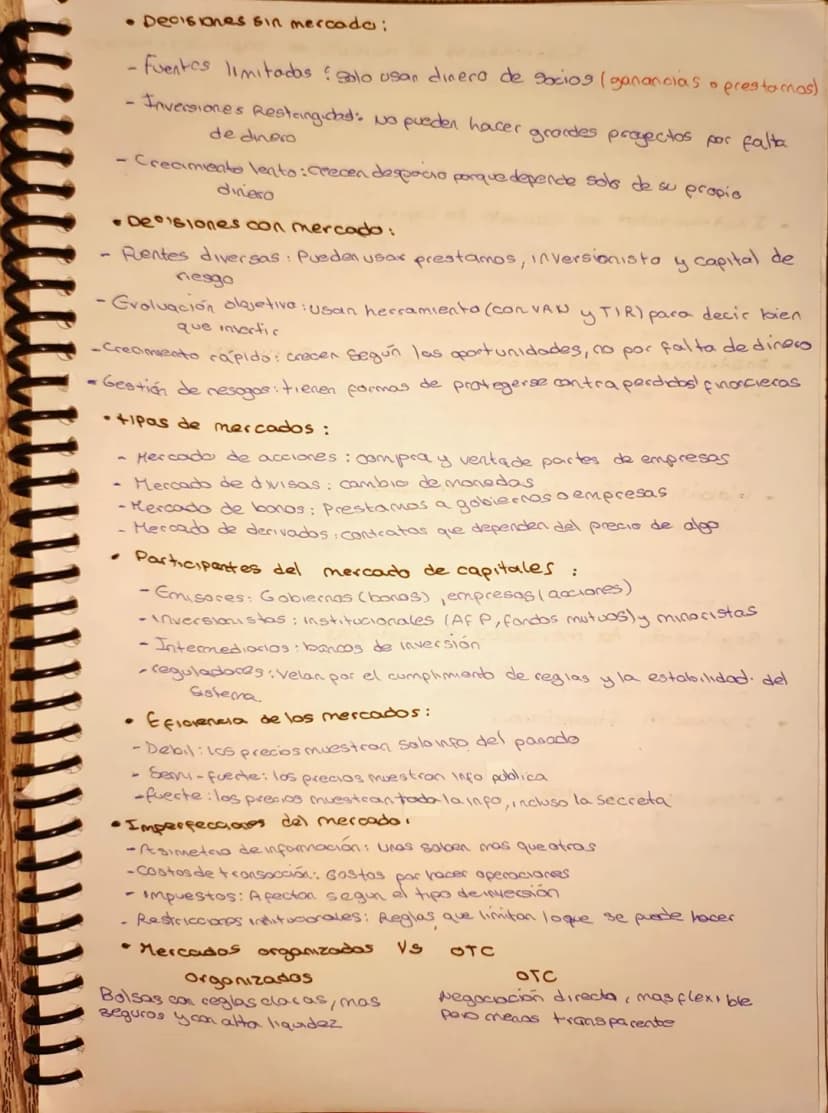 • Decisiones sin mercado:
- Fuentes limitadas: Solo usan dinero de socios (ganancias o prestamos)
- Inversiones Restringidas: No pueden hacer grandes proyectos por falta
de dinero
- Crecimiento lento: crecen despacio porque depende solo de su propio
dinero
• Decisiones con mercado:
- Fuentes diversas: Pueden usar prestamos, inversionista y capital de
riesgo
- Evaluación objetiva: usan herramienta (con VAN y TIR) para decir bien
que invertir
- Crecimiento rápido: crecen según las oportunidades, no por falta de dinero
- Gestión de riesgos: tienen formas de protegerse contra perdidas financieras
• tipos de mercados:
- Mercado de acciones: compra y venta de partes de empresas
- Mercado de divisas: cambio de monedas
- Mercado de bonos: Prestamos a gobiernos o empresas
- Mercado de derivados: contratos que dependen del precio de algo
• Participantes del mercado de capitales:
- Emisores: Gobiernos (bonos), empresas (acciones)
- Inversionistas: institucionales (AFP, fondos mutuos) y minoristas
- Intermediarios: bancos de inversión
- reguladores: Velan por el cumplimiento de reglas y la estabilidad del
Sistema.
• Eficiencia de los mercados:
- Debil: los precios muestran solo info del pasado
- Semi-fuerte: los precios muestran info publica
- fuerte: los precios muestran toda la info, incluso la secreta
• Imperfecciones del mercado:
- Asimetria de información: Unos saben mas que otros
- Costos de transacción: Gastos por hacer operaciones
- Impuestos: Afectan segun el tipo de inversión
- Restricciones institucionales: Reglas que limitan lo que se puede hacer
• Mercados organizados Vs OTC
Organizados OTC
Bolsas con reglas claras, mas Negociación directa, mas flexible
seguros y con alta liquidez pero menos transparente